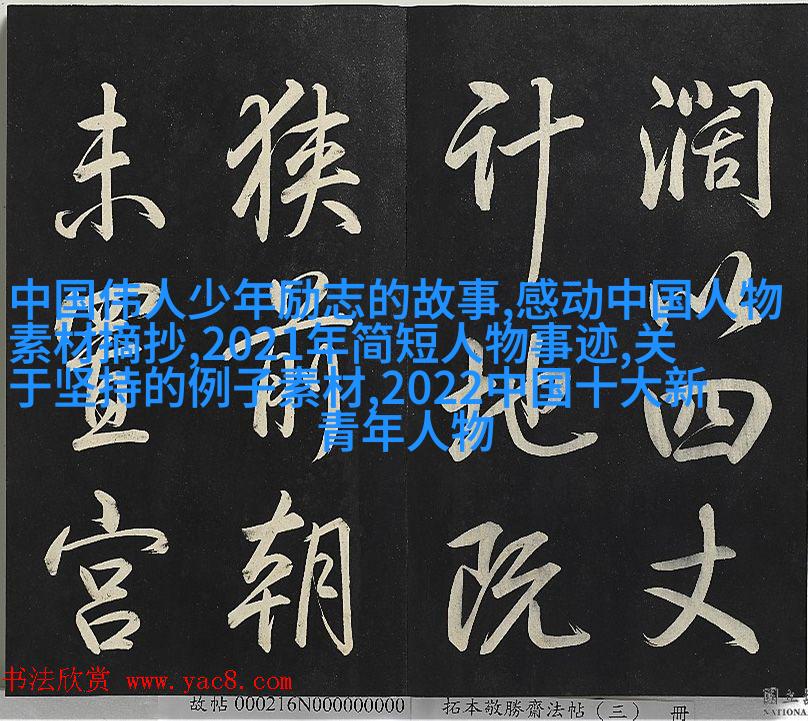 濶以四丈
計地既
狹前朝
未置宮
中国伟人少年励志的故事,感动中国人物
素材摘抄,2021年简短人物事迹,关
于坚持的例子素材,2022中国十大新
青年人物
书法欣赏 www.yac8.com
故帖 000216N000000000 拓本敬勝齋法帖（三） 冊
國立
NATIONA